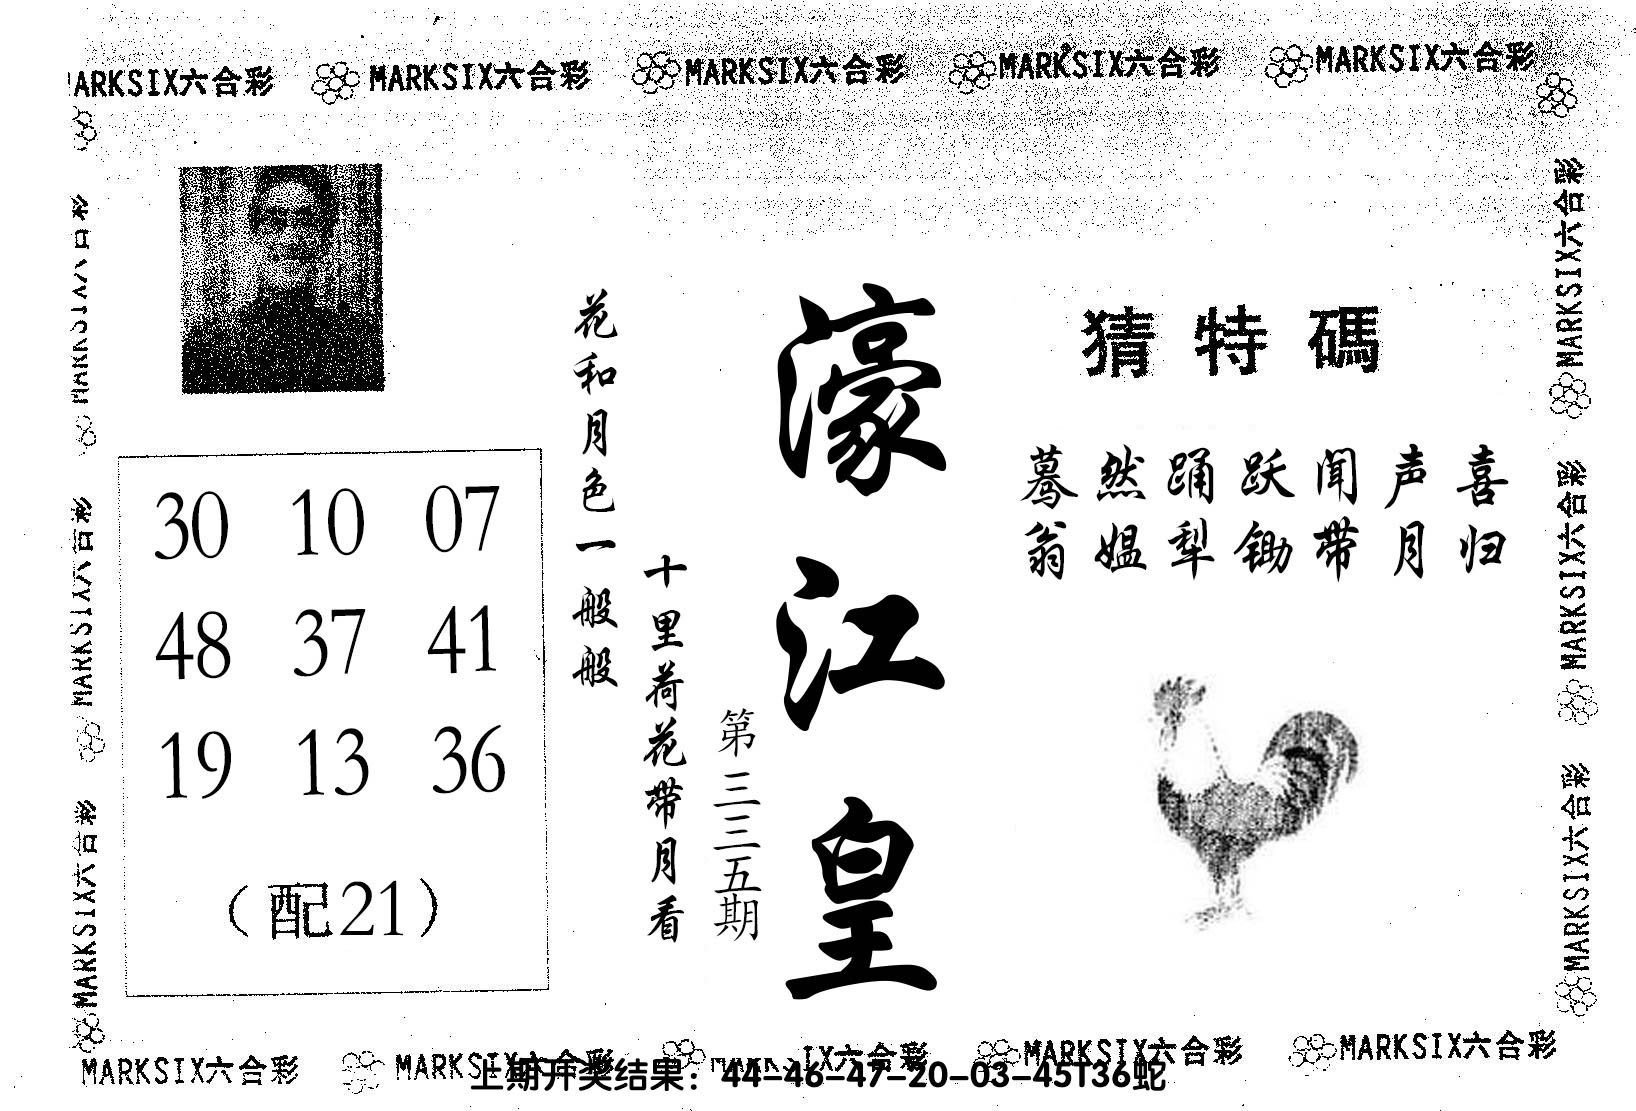 MARKSIX六合彩 MARKSIX六合彩 MARKSIX六合彩 MARKSIX六合彩 MARKSIX六合彩
猜特碼
蓦然踊跃闻声喜
翁媪犁锄带月归
濠江皇
第三三五期
花和月色一般般
十里荷花带月看
30 10 07
48 37 41
19 13 36
（配21）
MARKSIX六合彩
MARKSIX六合彩
MARKSIX六合彩
MARKSIX六合彩
MARKSIX六合彩
MARKSIX六合彩
MARKSIX六合彩 MARKSIX六合彩 MARKSIX六合彩 MARKSIX六合彩 MARKSIX六合彩
上期开奖结果：44-46-47-20-03-45T36蛇